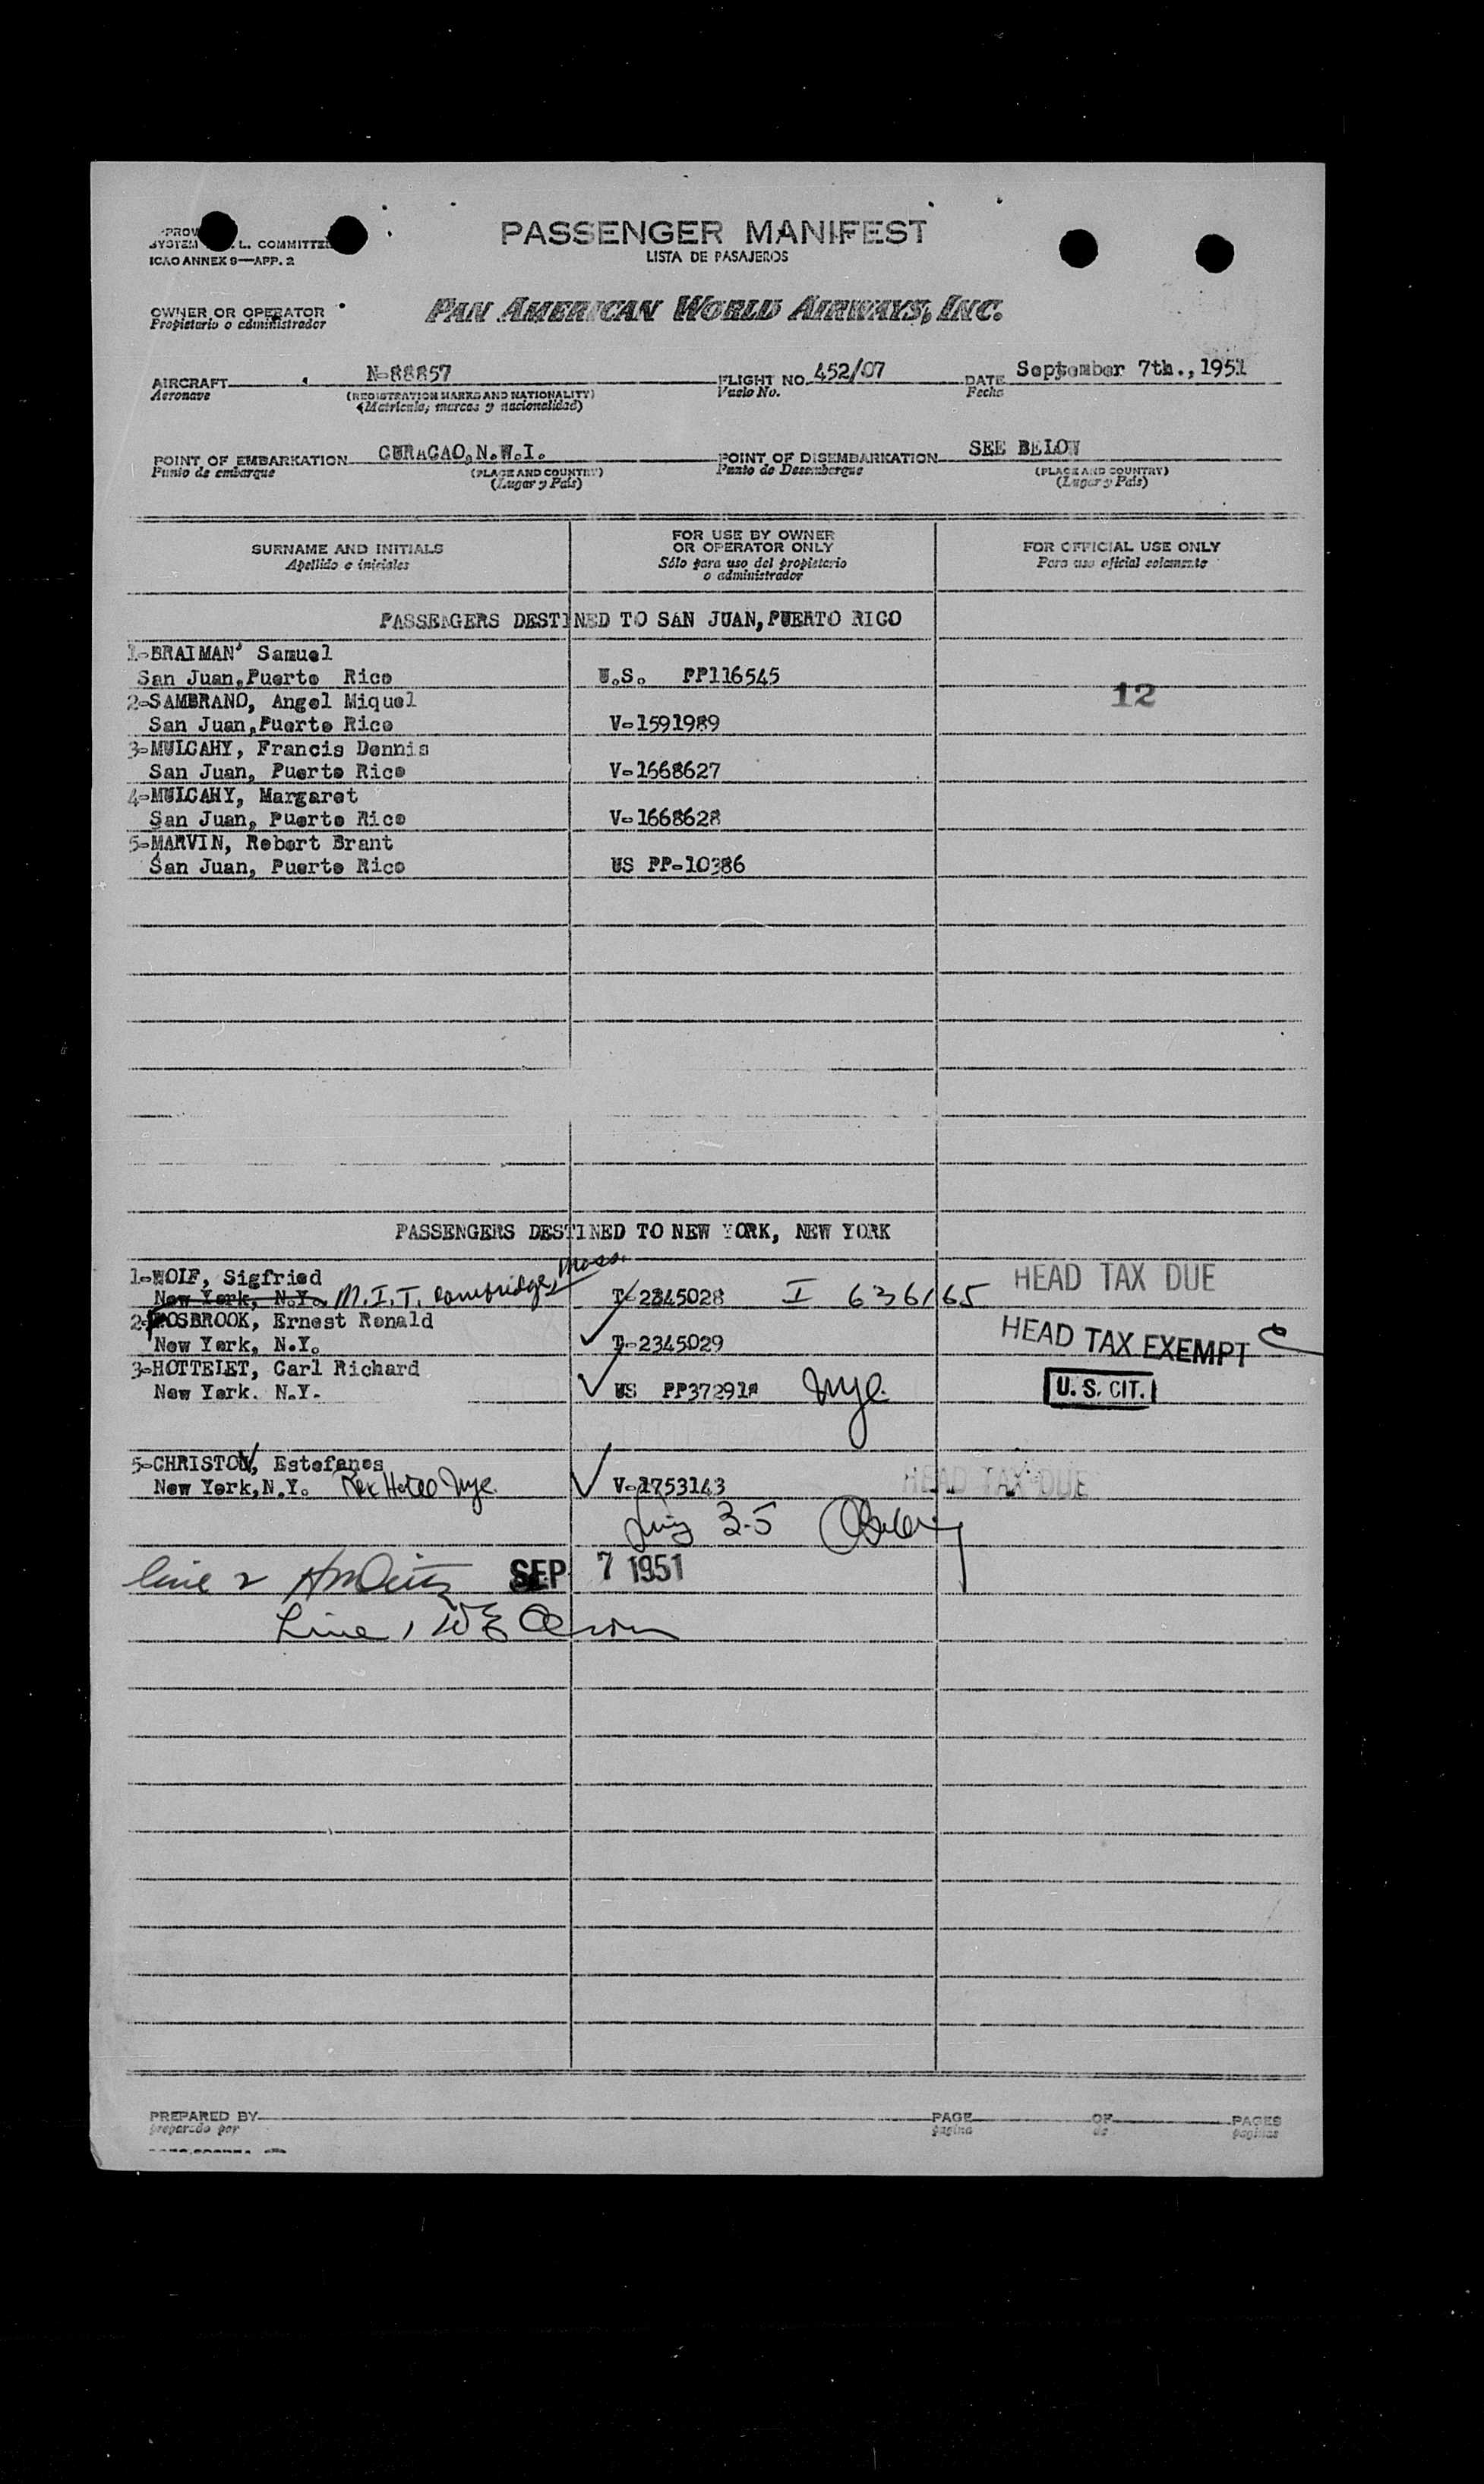 PASSENGER MANIFEST
LISTA DE PASAJEROS
SYSTEM L. COMMITTEE
ICAO ANNEX 9—APP. 2
OWNER OR OPERATOR
Propietario o administrador
PAN AMERICAN WORLD AIRWAYS, INC.
AIRCRAFT N-88857 FLIGHT NO. 452/07 DATE September 7th., 1951
Aeronave (REGISTRATION MARKS AND NATIONALITY) Vuelo No. Fecha
(Matricula, marcas y nacionalidad)
POINT OF EMBARKATION CURACAO, N.W.I. POINT OF DISEMBARKATION SEE BELOW
Punto de embarque (PLACE AND COUNTRY) Punto de Desembarque (PLACE AND COUNTRY)
(Lugar y País) (Lugar y País)
SURNAME AND INITIALS
Apellido e iniciales
FOR USE BY OWNER
OR OPERATOR ONLY
Sólo para uso del propietario
o administrador
FOR OFFICIAL USE ONLY
Para uso oficial solamente
PASSENGERS DESTINED TO SAN JUAN, PUERTO RICO
1-BRAIMAN' Samuel
San Juan, Puerto Rico U.S. PP116545
12
2-SAMBRANO, Angel Miquel
San Juan, Puerto Rico V-1591989
3-MULCAHY, Francis Dennis
San Juan, Puerto Rico V-1668627
4-MULCAHY, Margaret
San Juan, Puerto Rico V-1668628
5-MARVIN, Robert Brant
San Juan, Puerto Rico US PP-10386
PASSENGERS DESTINED TO NEW YORK, NEW YORK
1-WOLF, Sigfried HEAD TAX DUE
New York, N.Y. M.I.T. Cambridge, Mass. T-2345028 I 636165
2-ROSBROOK, Ernest Ronald HEAD TAX EXEMPT
New York, N.Y. T-2345029
3-HOTTELET, Carl Richard
New York. N.Y. US PP372918 nyc U. S. CIT.
5-CHRISTOV, Estefanos
New York, N.Y. Rex Hotel nyc V-1753143 HEAD TAX DUE
3-5
line 2 SEP 7 1951
Line 1
PREPARED BY PAGE OF PAGES
preparado por pagina de paginas